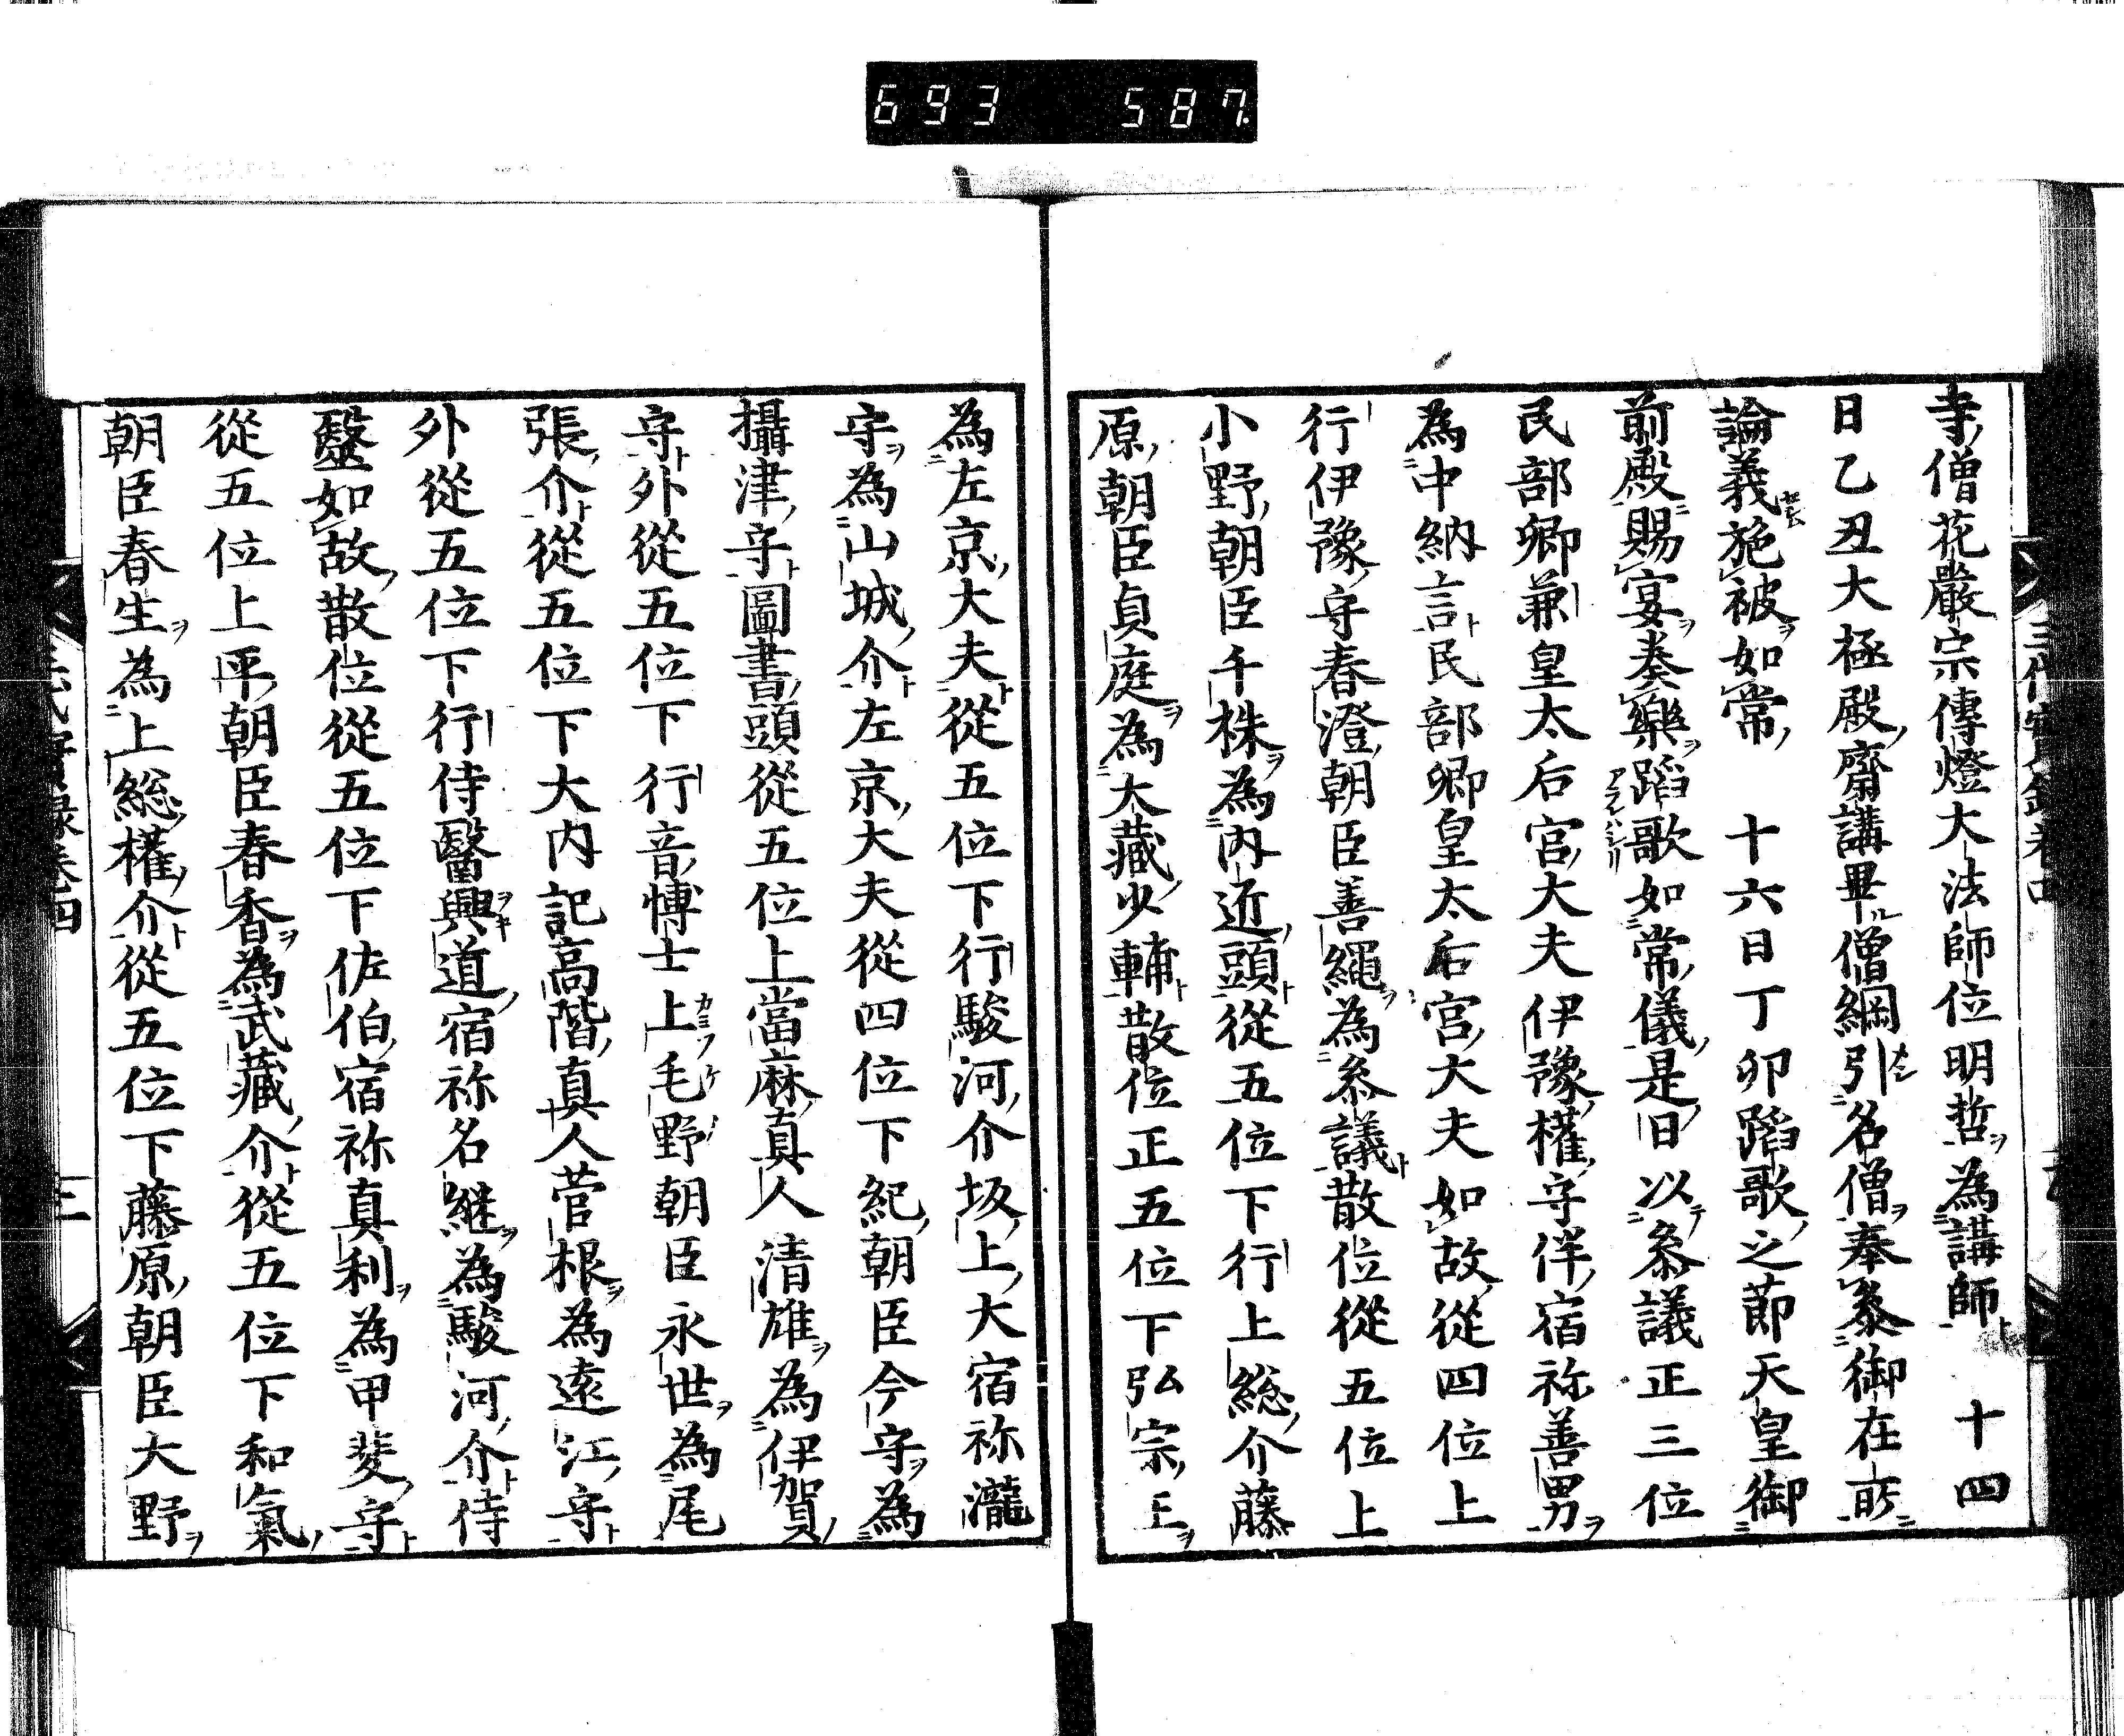 693 587
寺僧花嚴宗傳燈大法師位明哲為講師 十四
日乙丑大極殿齋講畢僧綱引名僧奉參御在所
論義施被如常 十六日丁卯蹈歌之節天皇御
前殿賜宴奏樂蹈歌如常儀是日以參議正三位
民部卿兼皇太后宮大夫伊豫權守伴宿祢善男
為中納言民部卿皇太后宮大夫如故從四位上
行伊豫守春澄朝臣善繩為參議散位從五位上
小野朝臣千株為內近頭從五位下行上総介藤
原朝臣貞庭為大藏少輔散位正五位下弘宗王
為左京大夫從五位下行駿河介坂上大宿祢瀧
守為山城介左京大夫從四位下紀朝臣今守為
攝津守圖書頭從五位上當麻真人清雄為伊賀
守外從五位下行音博士上毛野朝臣永世為尾
張介從五位下大内記高階真人菅根為遠江守
外從五位下行侍醫興道宿祢名継為駿河介侍
毉如故散位從五位下佐伯宿祢真利為甲斐守
從五位上平朝臣春香為武藏介從五位下和氣
朝臣春生為上総權介從五位下藤原朝臣大野